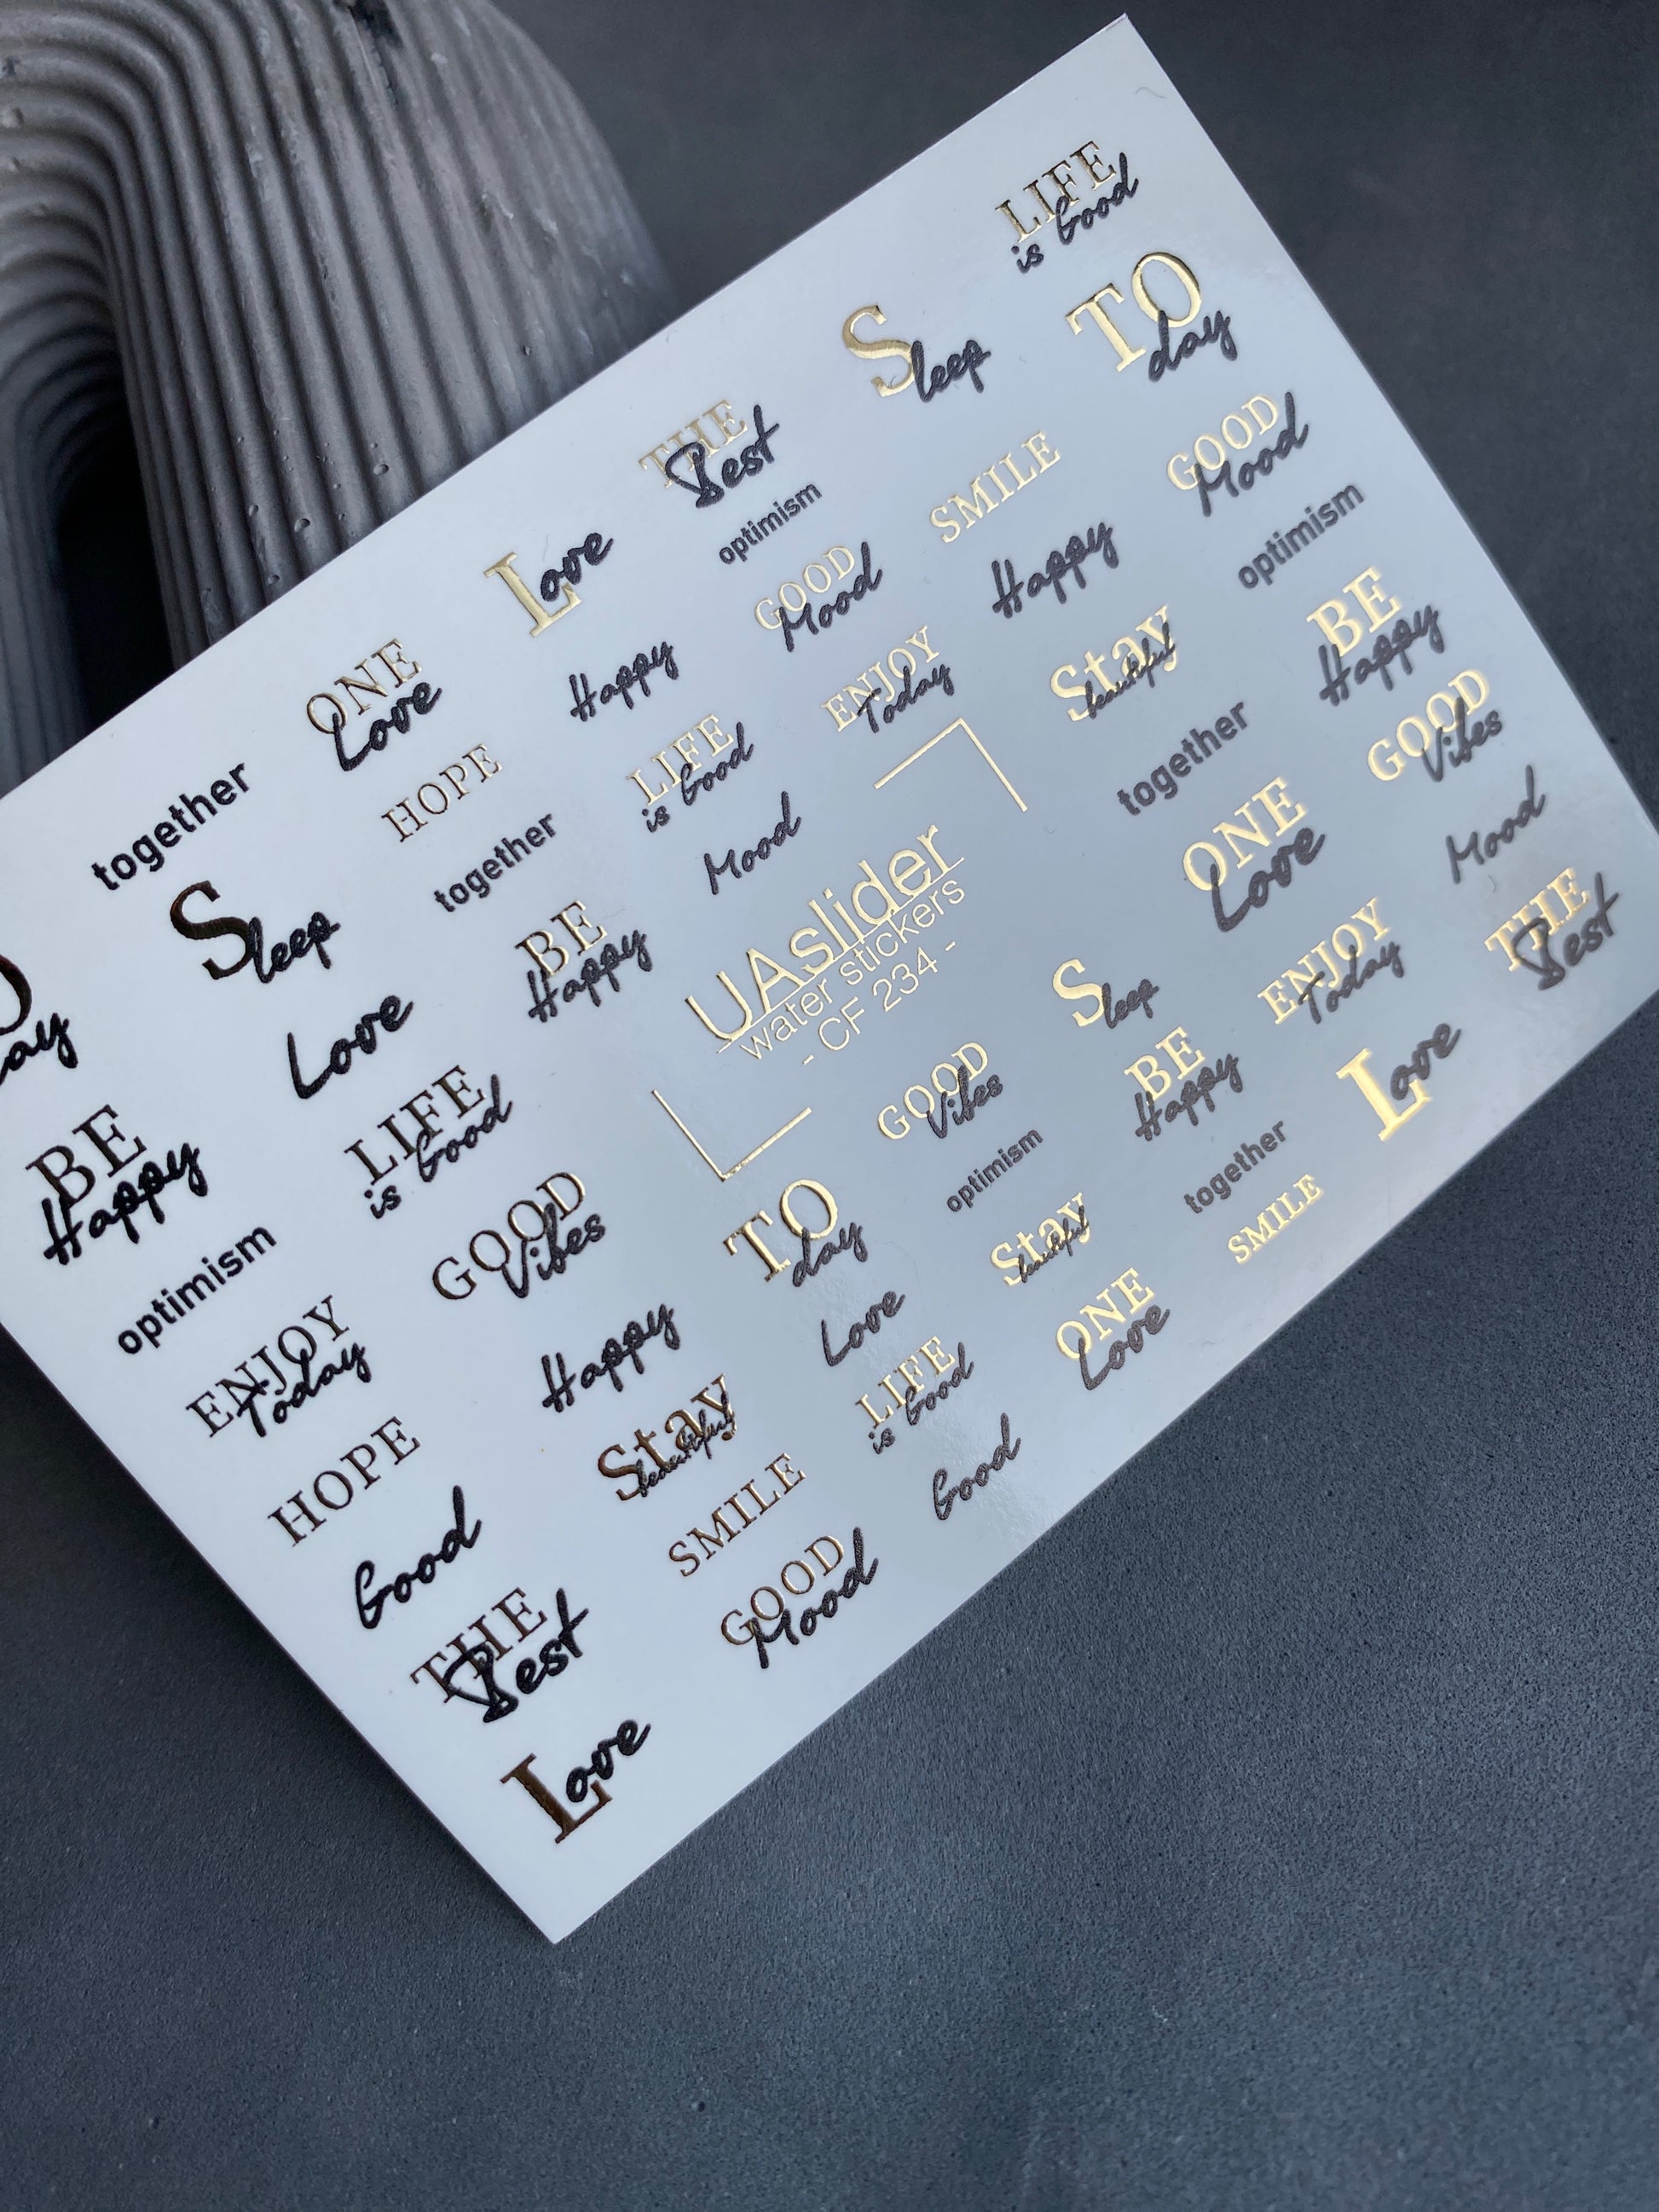 LIFE
is Good
Sleep
TO
day
THE
Best
optimism
SMILE
GOOD
Mood
Love
GOOD
Mood
Happy
optimism
ONE
Love
Happy
ENJOY
Today
Stay
beautiful
BE
Happy
together
HOPE
LIFE
is Good
together
GOOD
Vibes
Sleep
together
Mood
ONE
Love
Mood
ay
Love
BE
Happy
UAslider
water stickers
- CF 234 -
Sleep
ENJOY
Today
THE
Best
BE
Happy
LIFE
is Good
GOOD
Vibes
BE
Happy
Love
optimism
GOOD
Vibes
TO
day
optimism
Stay
beautiful
together
SMILE
ENJOY
Today
Happy
Love
ONE
Love
HOPE
Stay
beautiful
LIFE
is Good
Good
SMILE
Good
THE
Best
GOOD
Mood
Love